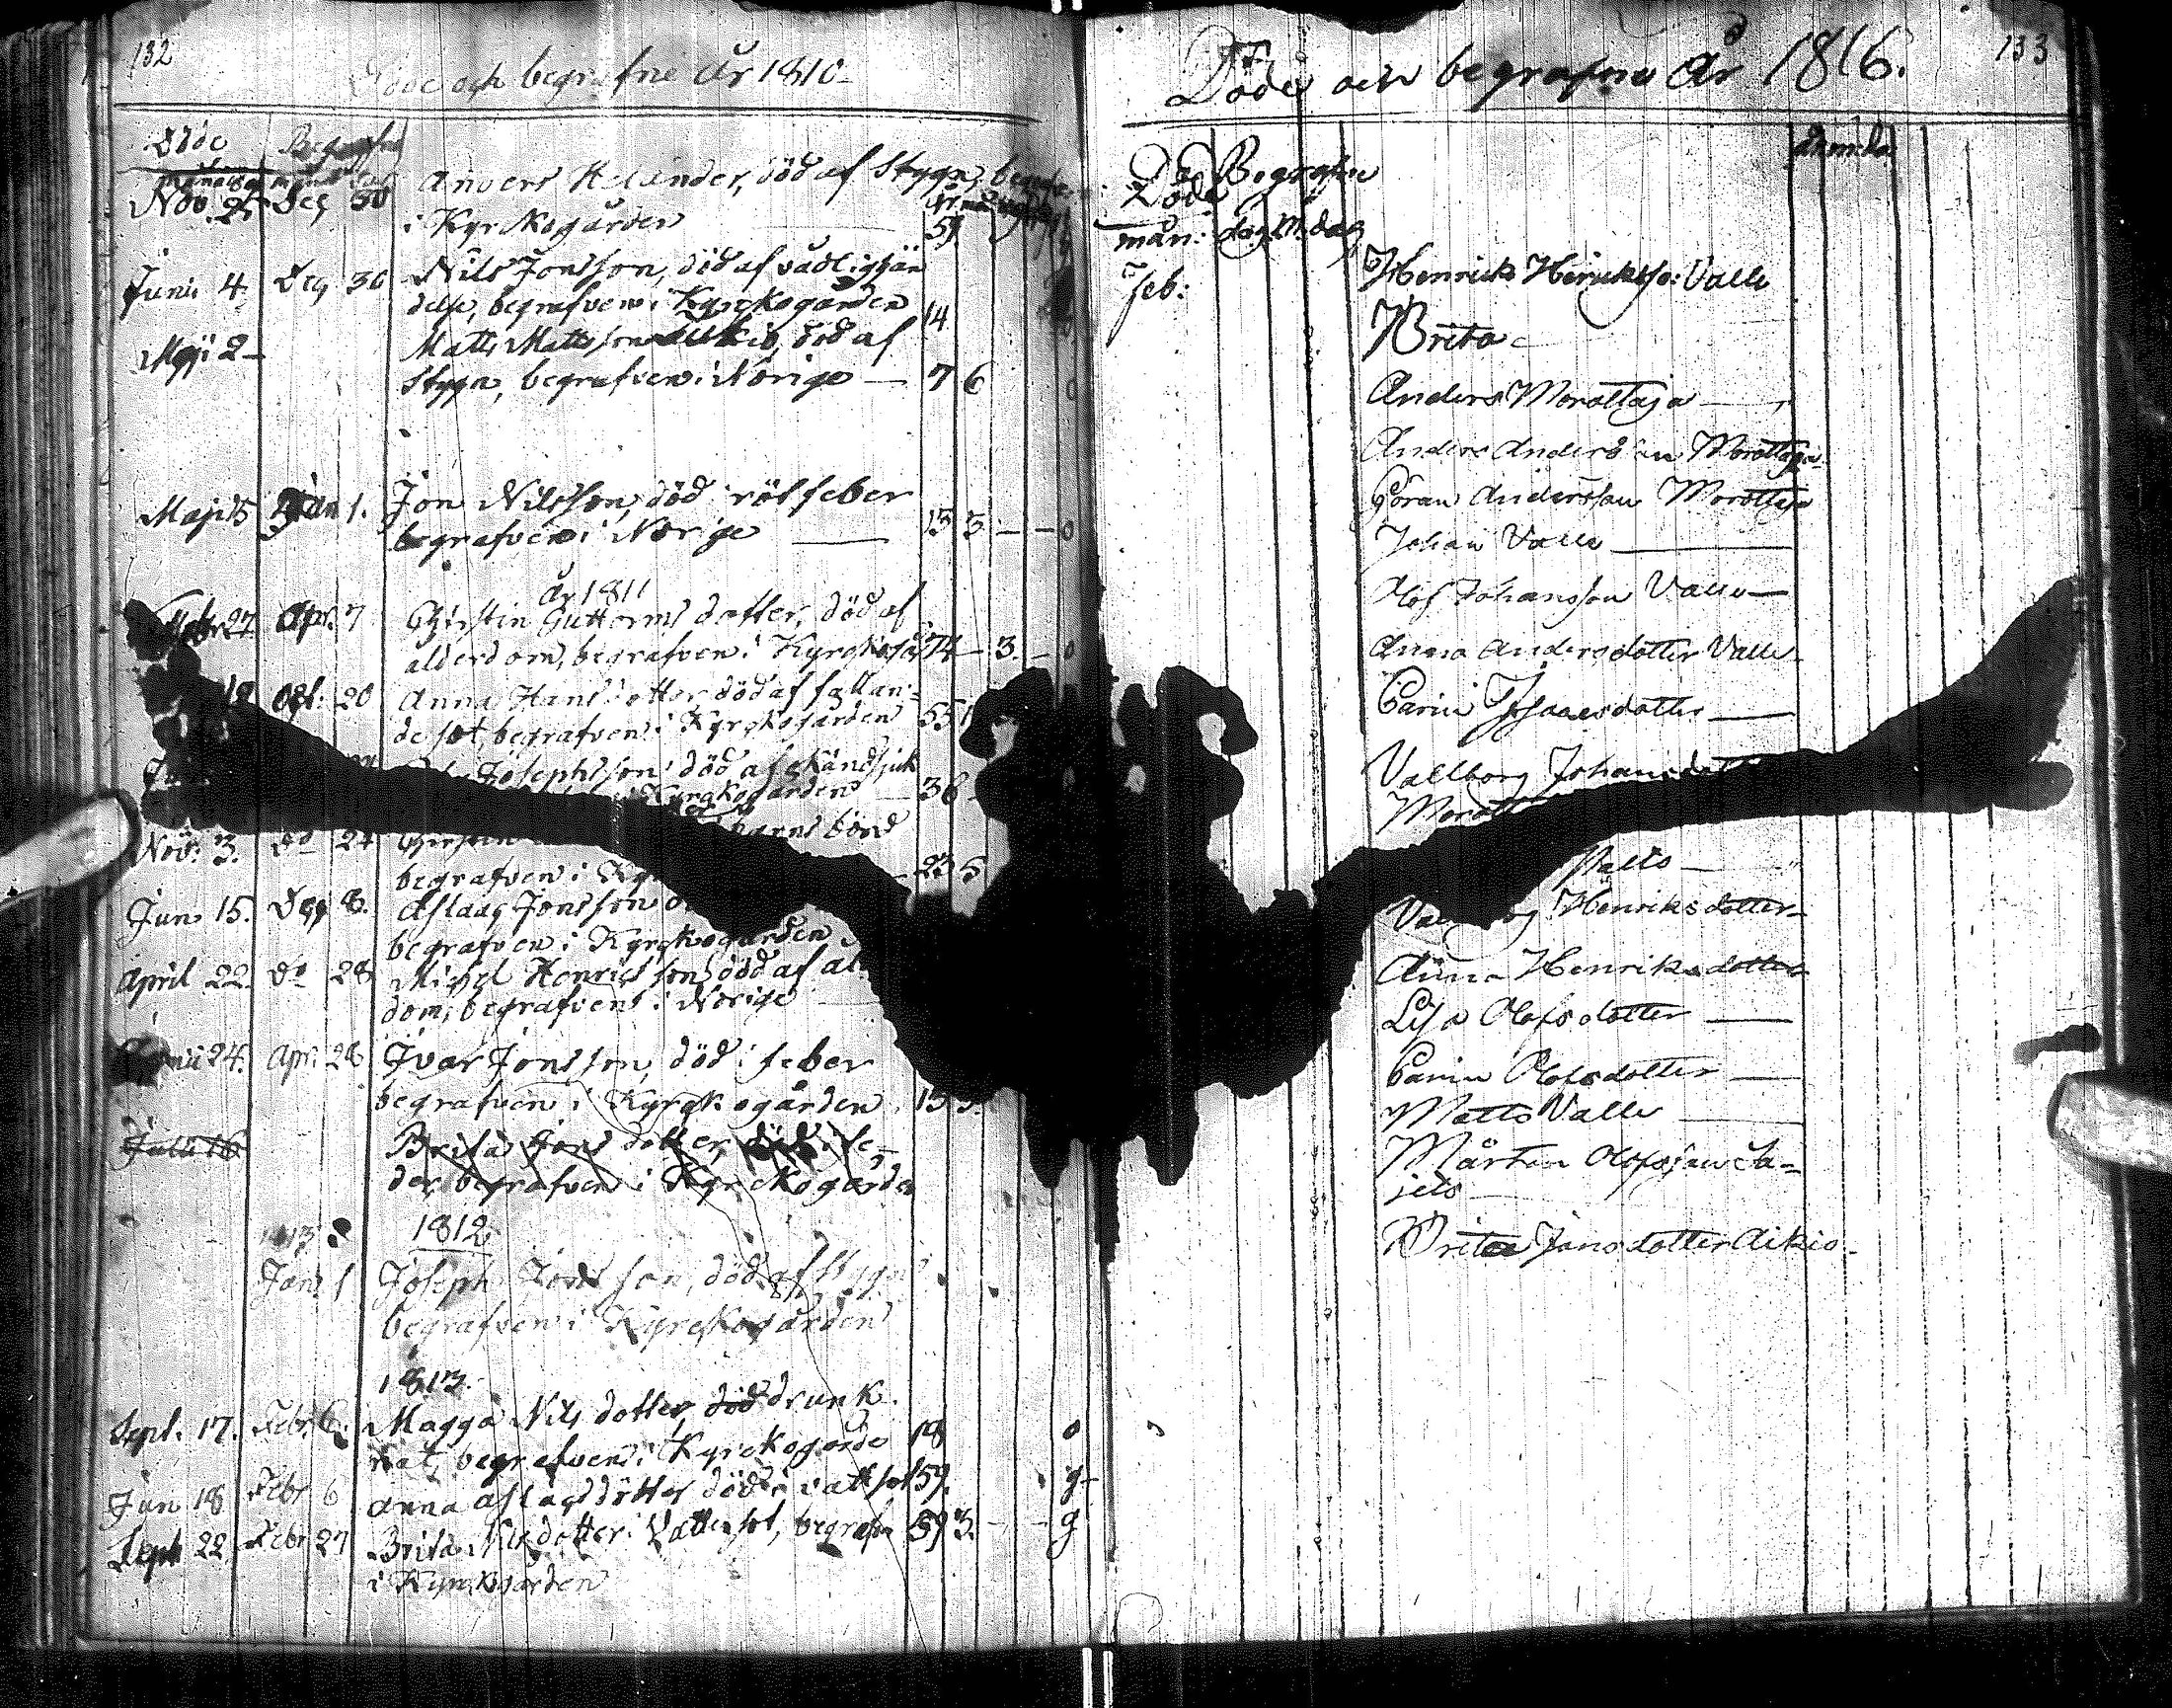 132
Döde och begrafne År 1810
Döde Begrafne
Nov. 25 Dec 30 Anders Helander, död af Stygn,
i Kyrkogården 59
Junii 4. Dec 30 Nils Jonsson, död af vådlig hän
delse, begrafven i Kyrckogården 14
Maji 2 Matts Mattsson död af
Stygn, begrafven i Norige — 7 6
Maji 15 Jan 1. Jon Nilsson, död i rötfeber
begrafven i Norige — 13 3 — — 0
År 1811
27 Apr. 7 Christin Guttorms dotter, död af
alderdom, begrafven i 74 — 3. — 0
Oct: 20 Anna Hans dotter död af fallan-
de sot, begrafven i Kyrckogården 55 1
Josephsson död af
i Kyrckogården — 36
Nov: 3. Do 24 barns börd
begrafven i — 23 5
Jun 15. Dec 8. Aslaag Jonsson
begrafven i Kyrckogården
April 22. Do 28 Michel Henricsson död af al
dom, begrafven i Norige
24. Apr. 28 Ivar Jonsson, död i feber
begrafven i Kyrckogården 13
Julii 16 Brita Jons dotter, död i fe-
ber begrafven i Kyrckogården
1812
Jan. 1 Joseph Jonsson, död af Stygn
begrafven i Kyrckogården
1813.
Sept. 17. Febr. 6. Magga Nils dotter, död drunk
nat, begrafven i Kyrckogårde 18 0
Jun 18 Febr 6 Anna Aslagsdotter död i vattsot 59. g
Sept 22 Febr 27 Brita Nilsdotter i Vattensot, begrafen 59 3. — — g
i Kyrckogården
133
Döde och begrafne År 1816.
år. m. da
Döde Begrafne
mån: dag M. dag
Feb: Henrick Henricksso: Valle
Brita
Anders Morottaja —
Anders Andersson Morottaja
Göran Andersson Morottaja
Johan Valle —
Olof Johansson Valle —
Anna Andersdotter Valle
Carin Isaacsdotter —
Vallborg Johansdott
Henriksdotter
Anna Henriksdotter
Lisa Olofsdotter —
Carin Olofsdotter —
Matts Valle —
Mårten Olofsson Sa-
jets
Brita Jonsdotter Aikio